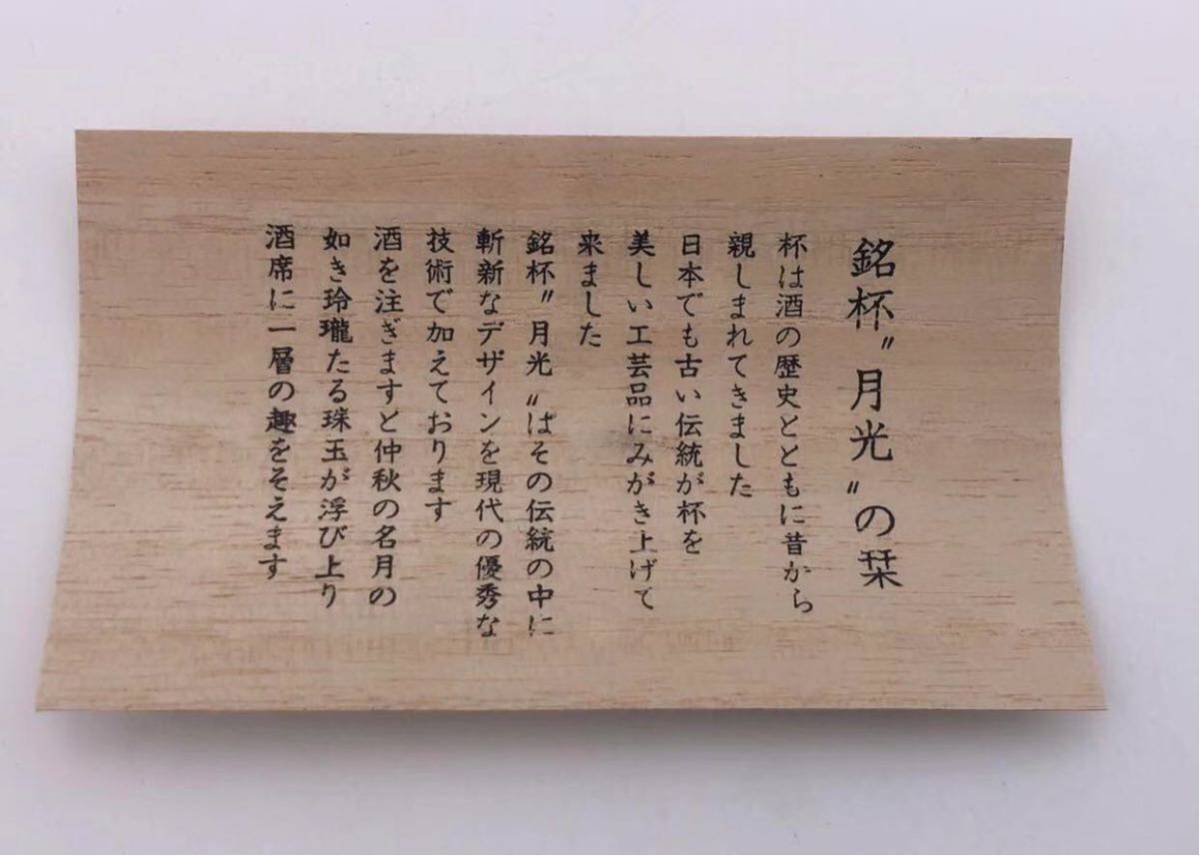 銘杯〝月光〟の栞
杯は酒の歴史とともに昔から
親しまれてきました
日本でも古い伝統が杯を
美しい工芸品にみがき上げて
来ました
銘杯〝月光〟はその伝統の中に
斬新なデザインを現代の優秀な
技術で加えております
酒を注ぎますと仲秋の名月の
如き玲瓏たる珠玉が浮び上り
酒席に一層の趣をそえます